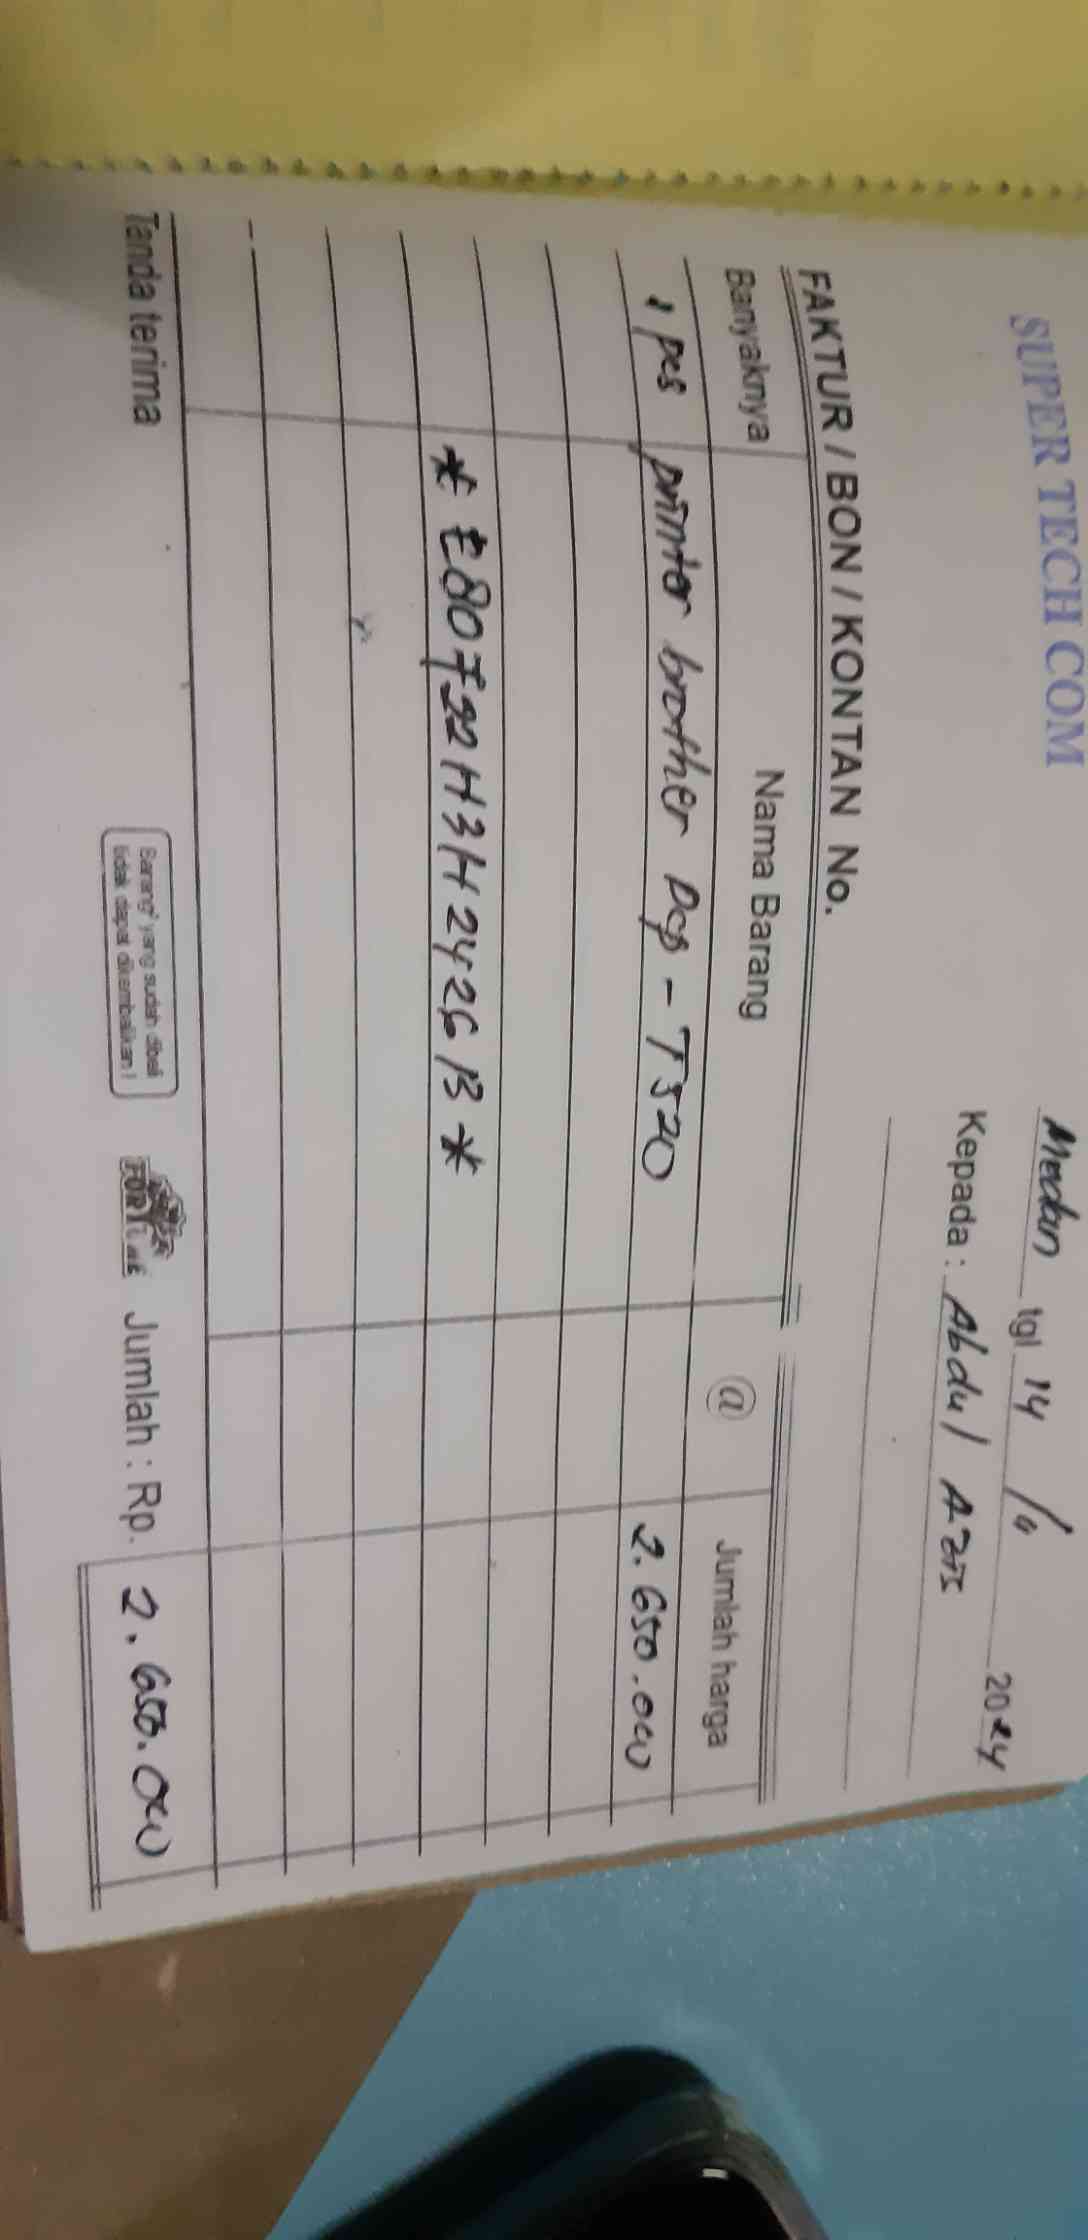 SUPER TECH COM
Medan tgl 14 / 11 2024
Kepada : Abdul Azis
FAKTUR / BON / KONTAN No.
Banyaknya Nama Barang @ Jumlah harga
1 pcs printer brother Dcp - T520 2.650.000
* E80722H3H242613 *
Tanda terima
Barang² yang sudah dibeli
tidak dapat dikembalikan !
FORTUNE
Jumlah : Rp. 2.650.000